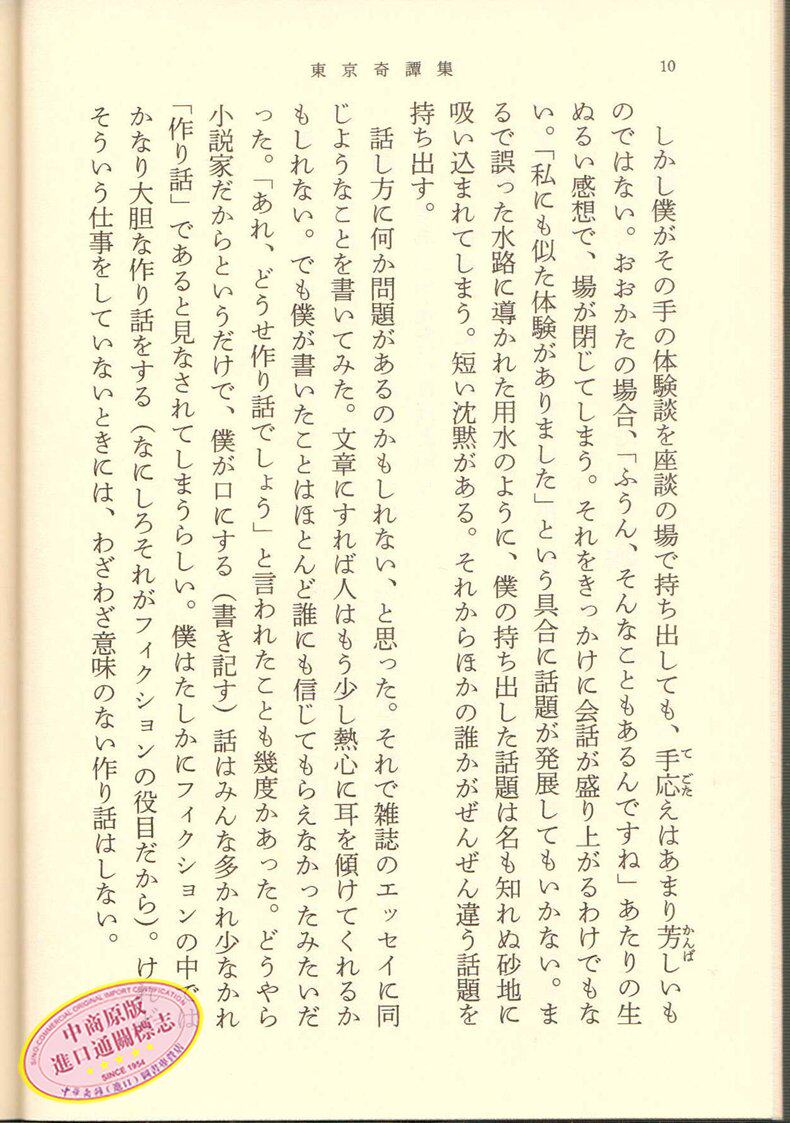 東京奇譚集
10
しかし僕がその手の体験談を座談の場で持ち出しても、手応えはあまり芳しいも
てごた
かんば
のではない。おおかたの場合、「ふうん、そんなこともあるんですね」あたりの生
ぬるい感想で、場が閉じてしまう。それをきっかけに会話が盛り上がるわけでもな
い。「私にも似た体験がありました」という具合に話題が発展してもいかない。ま
るで誤った水路に導かれた用水のように、僕の持ち出した話題は名も知れぬ砂地に
吸い込まれてしまう。短い沈黙がある。それからほかの誰かがぜんぜん違う話題を
持ち出す。
話し方に何か問題があるのかもしれない、と思った。それで雑誌のエッセイに同
じようなことを書いてみた。文章にすれば人はもう少し熱心に耳を傾けてくれるか
もしれない。でも僕が書いたことはほとんど誰にも信じてもらえなかったみたいだ
った。「あれ、どうせ作り話でしょう」と言われたことも幾度かあった。どうやら
小説家だからというだけで、僕が口にする（書き記す）話はみんな多かれ少なかれ
「作り話」であると見なされてしまうらしい。僕はたしかにフィクションの中では
かなり大胆な作り話をする（なにしろそれがフィクションの役目だから）。け
そういう仕事をしていないときには、わざわざ意味のない作り話はしない。
SINO-COMMERCIAL ORIGINAL IMPORT CERTIFICATION
中商原版
進口通關標志
SINCE 1954